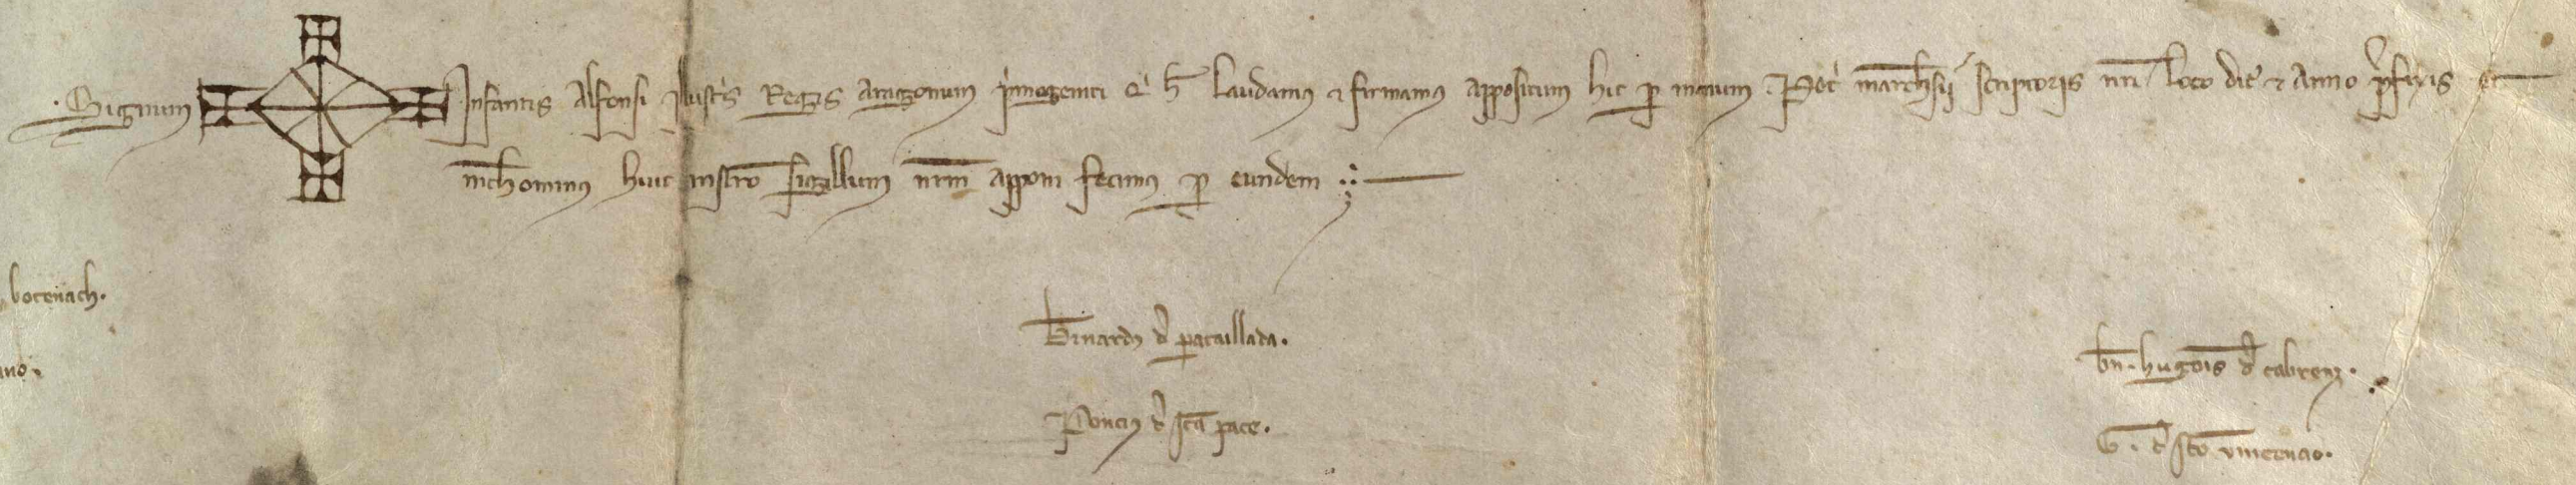 Signum Infantis Alfonsi illustris Regis Aragonum primogeniti qui hec laudamus et firmamus appositum hic per manum Petri Marchesii scriptoris nostri loco die et anno prefixis et
nichominus huic instro sigillum nrm apponi fecimus per eundem
bocenach.
Bernardus de pataillada.
bn. hugois de cabrenz.
no.
Poncius de sta pace.
G. de sco vincencio.